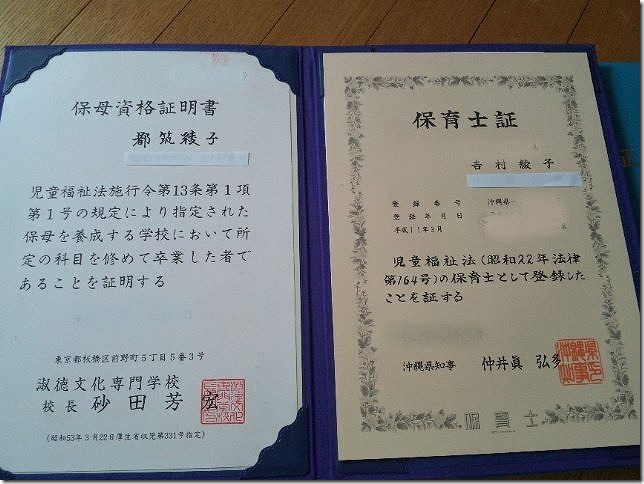 保母資格証明書
都筑綾子
児童福祉法施行令第13条第1項
第1号の規定により指定された
保母を養成する学校において所
定の科目を修めて卒業した者で
あることを証明する
東京都板橋区前野町5丁目5番3号
淑徳文化専門学校
校長 砂田芳宏
(昭和53年3月22日厚生省収児第331号指定)
保育士証
吉村綾子
登録番号 沖縄県-
登録年月日
平成11年3月
児童福祉法(昭和22年法律
第164号)の保育士として登録した
ことを証する
沖縄県知事 仲井眞 弘多
沖縄県知事之印
保育士